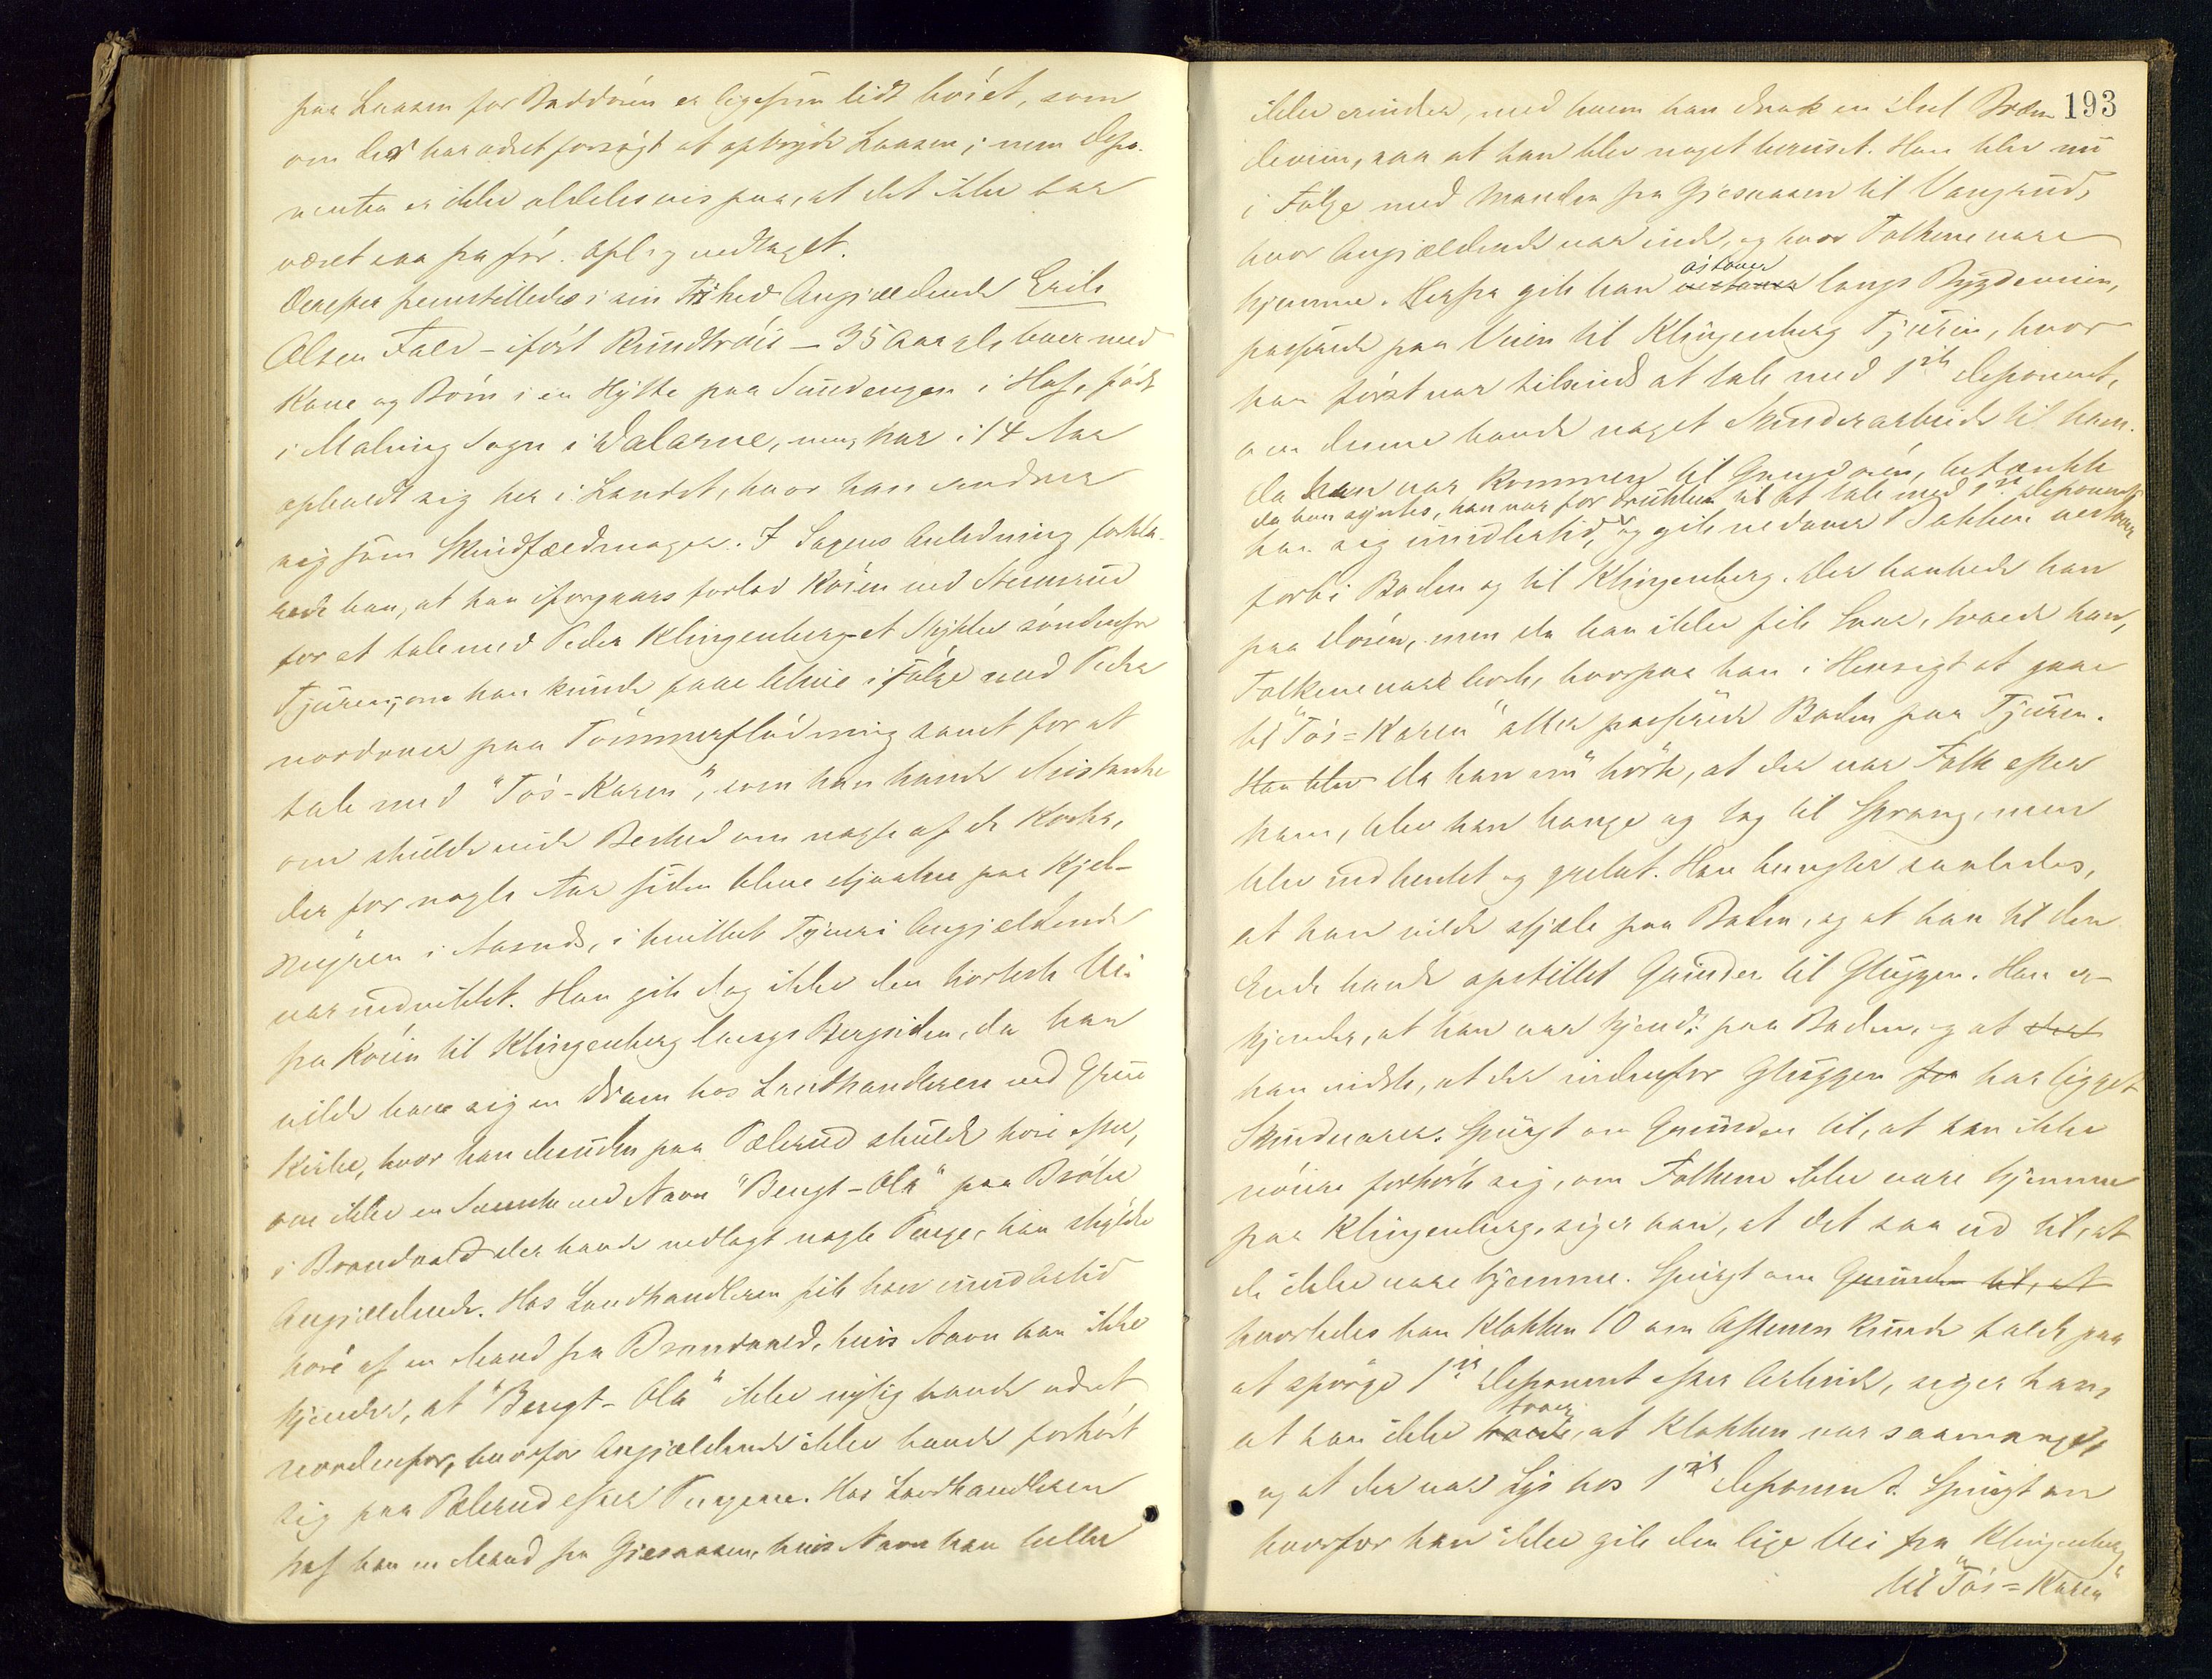 paa Laasen for Baddören er ligesom lidt böiet, som
om der har været forsögt at opbryde Laasen; men Depo-
nenten er ikke aldeles vis paa, at det ikke har
været saa fra för. Opl. og vedtaget.
Derefter fremstilledes i sin Frihed Angjældende Erik
Olsen Fald - ifört Bundtröie - 35 Aar gl., boer med
Kone og Börn i en Hytte paa Sundengen i Hof, född
i Malung Sogn i Dalarne, men har i 14 Aar
opholdt sig her i Landet, hvor han ernærer
sig som Skindfældmager. I Sagens Anledning forkla-
rede han, at han iforgaars forlod Koien ved Stensrud
for at tale med Peder Klingenberg et Stykke söndenfor
Tjuren, om han kunde faae blive i Fölge med Peder
nordover paa Tömmerflödning samt for at
tale med "Tös-Karen", som han havde Mistanke
om skulde vide Besked om nogle af de Korke,
der for nogle Aar siden bleve stjaalne paa Kjel-
myren i Aasnæs, i hvilket Tyveri Angjældende
var indviklet. Han gik dog ikke den korteste Vei
fra Koien til Klingenberg langs Bergsiden, da han
vilde have sig en Dram hos Landhandleren ved Grue
Kirke, hvor han desuden paa Pælerud skulde höre efter,
om ikke en Svenske ved Navn "Bengt-Ola" paa Bröhe
i Brandvald der havde nedlagt nogle Penge, han skyldte
Angjældende. Hos Landhandleren fik han imidlertid
höre af en Mand fra Brandvald, hvis Navn han ikke
kjender, at "Bengt-Ola" ikke nylig havde været
nordenfor, hvorfor Angjældende ikke havde forhört
sig paa Pælerud efter Pengene. Hos Landhandleren
traf han en Mand fra Gjesaasen, hvis Navn han heller
193
ikke erindrer, med hvem han drak en Deel Bræn-
deviin, saa at han blev noget beruset. Han blev nu
i Fölge med Manden fra Gjesaasen til Vangrud,
hvor Angjældende var inde, og hvor Folkene vare
hjemme. Herfra gik han vestover östover langs Bygdeveien,
passerede paa Veien til Klingenberg Tjuren, hvor
han först var tilsinds at tale med 1ste Deponent,
om denne havde noget Skindarbeide til ham.
Da han var kommen til Grinddören, betænkte
da han syntes, han var for drukken til at tale med 1ste Deponent
han sig imidlertid, og gik nedover Bakken vestover
forbi Boden og til Klingenberg. Der bankede han
paa Dören, men da han ikke fik Svar, troede han,
Folkene vare borte, hvorpaa han i Hensigt at gaae
til "Tös=Karen" atter passerede Boden paa Tjuren.
Han blev Da han nu hörte, at der var Folk efter
ham, blev han bange og tog til Sprang, men
blev indhentet og grebet. Han benegter saaledes,
at han vilde stjæle paa Boden, og at han til den
Ende havde opstillet Grinden til Gluggen. Han er-
kjender, at han var kjendt paa Boden, og at det
han vidste, at der indenfor Gluggen for har ligget
Skindvarer. Spurgt om Grunden til, at han ikke
nöiere forhörte sig, om Folkene ikke vare hjemme
paa Klingenberg, siger han, at det saa ud til, at
de ikke vare hjemme. Spurgt om Grunden til, at
hvorledes han Klokken 10 om Aftenen kunde falde paa
at spörge 1ste Deponent efter Arbeide, siger han,
at han ikke troede troer, at Klokken var saamange,
og at der var Lys hos 1ste Deponent. Spurgt om
hvorfor han ikke gik den lige Vei fra Klingenberg
til "Tös=Karen"